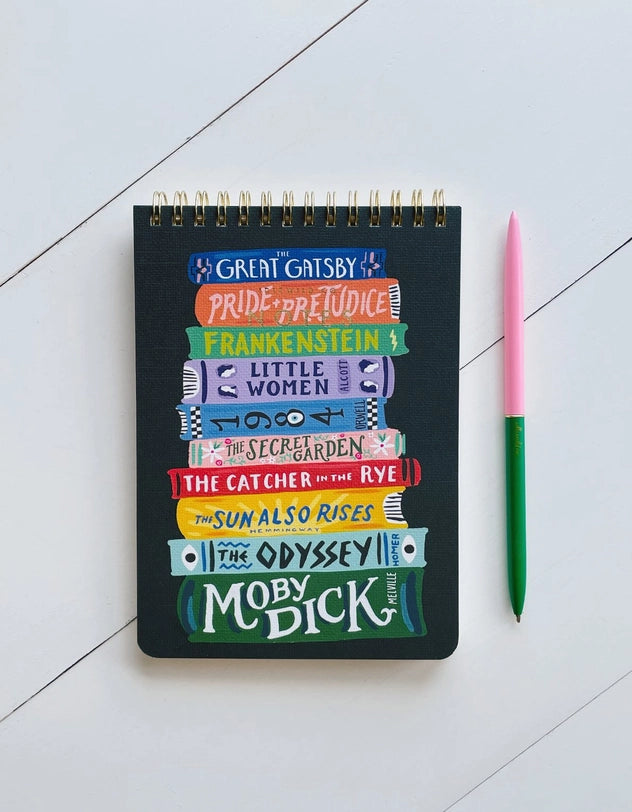 THE
GREAT GATSBY
PRIDE + PREJUDICE
NOTES
FRANKENSTEIN
LITTLE
WOMEN
ALCOTT
1984
ORWELL
THE SECRET
GARDEN
THE CATCHER IN THE RYE
THE SUN ALSO RISES
HEMMINGWAY
THE ODYSSEY
HOMER
MOBY
DICK
MELVILLE